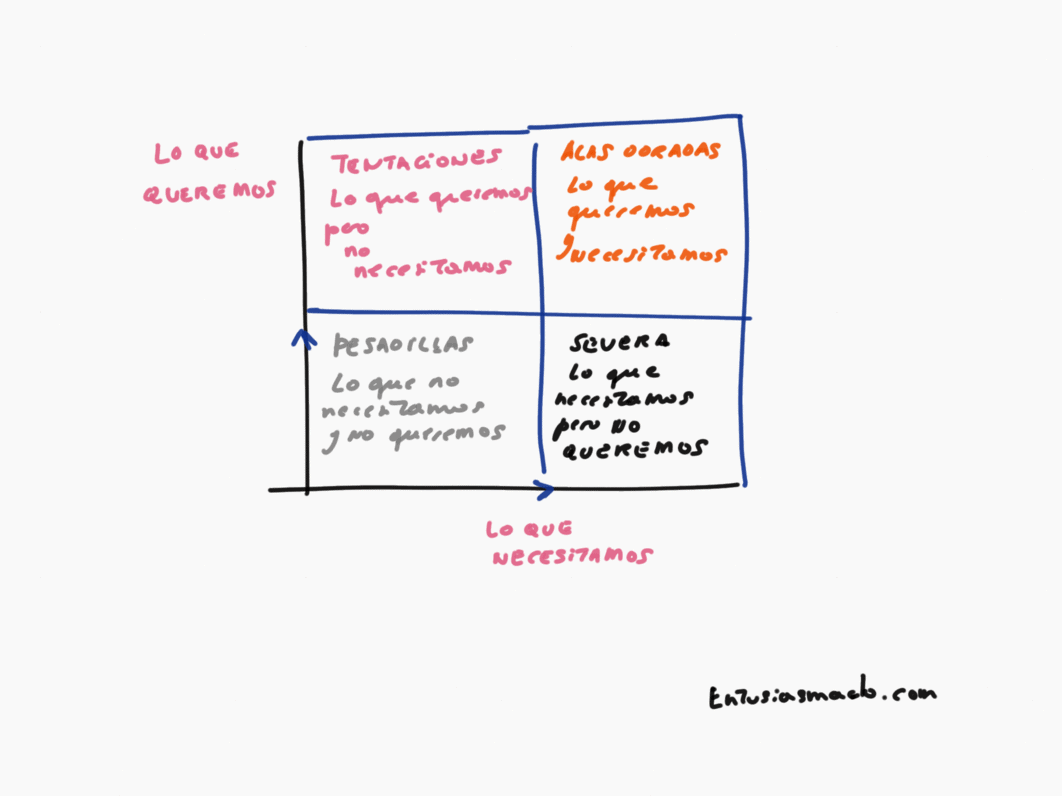 LO QUE
QUEREMOS
TENTACIONES
Lo que queremos
pero
no
necesitamos
ALAS DORADAS
Lo que
queremos
y necesitamos
PESADILLAS
Lo que no
necesitamos
y no queremos
SEVERA
Lo que
necesitamos
pero no
QUEREMOS
LO QUE
NECESITAMOS
Entusiasmado.com